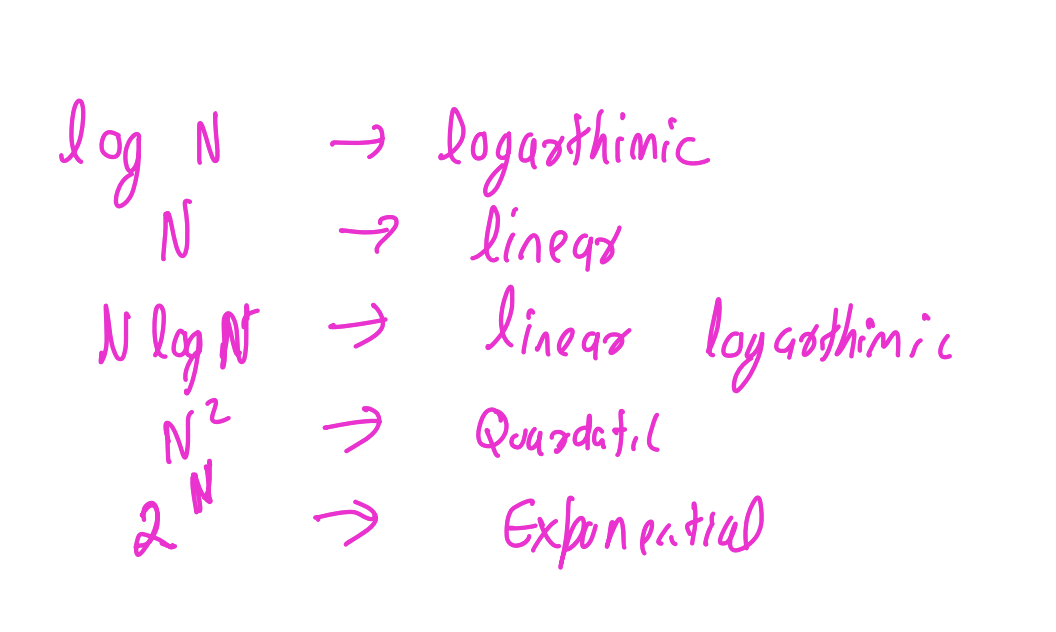 log N → logarthimic
N → linear
N log N → linear logarthimic
N² → Quardatic
2^N → Exponential